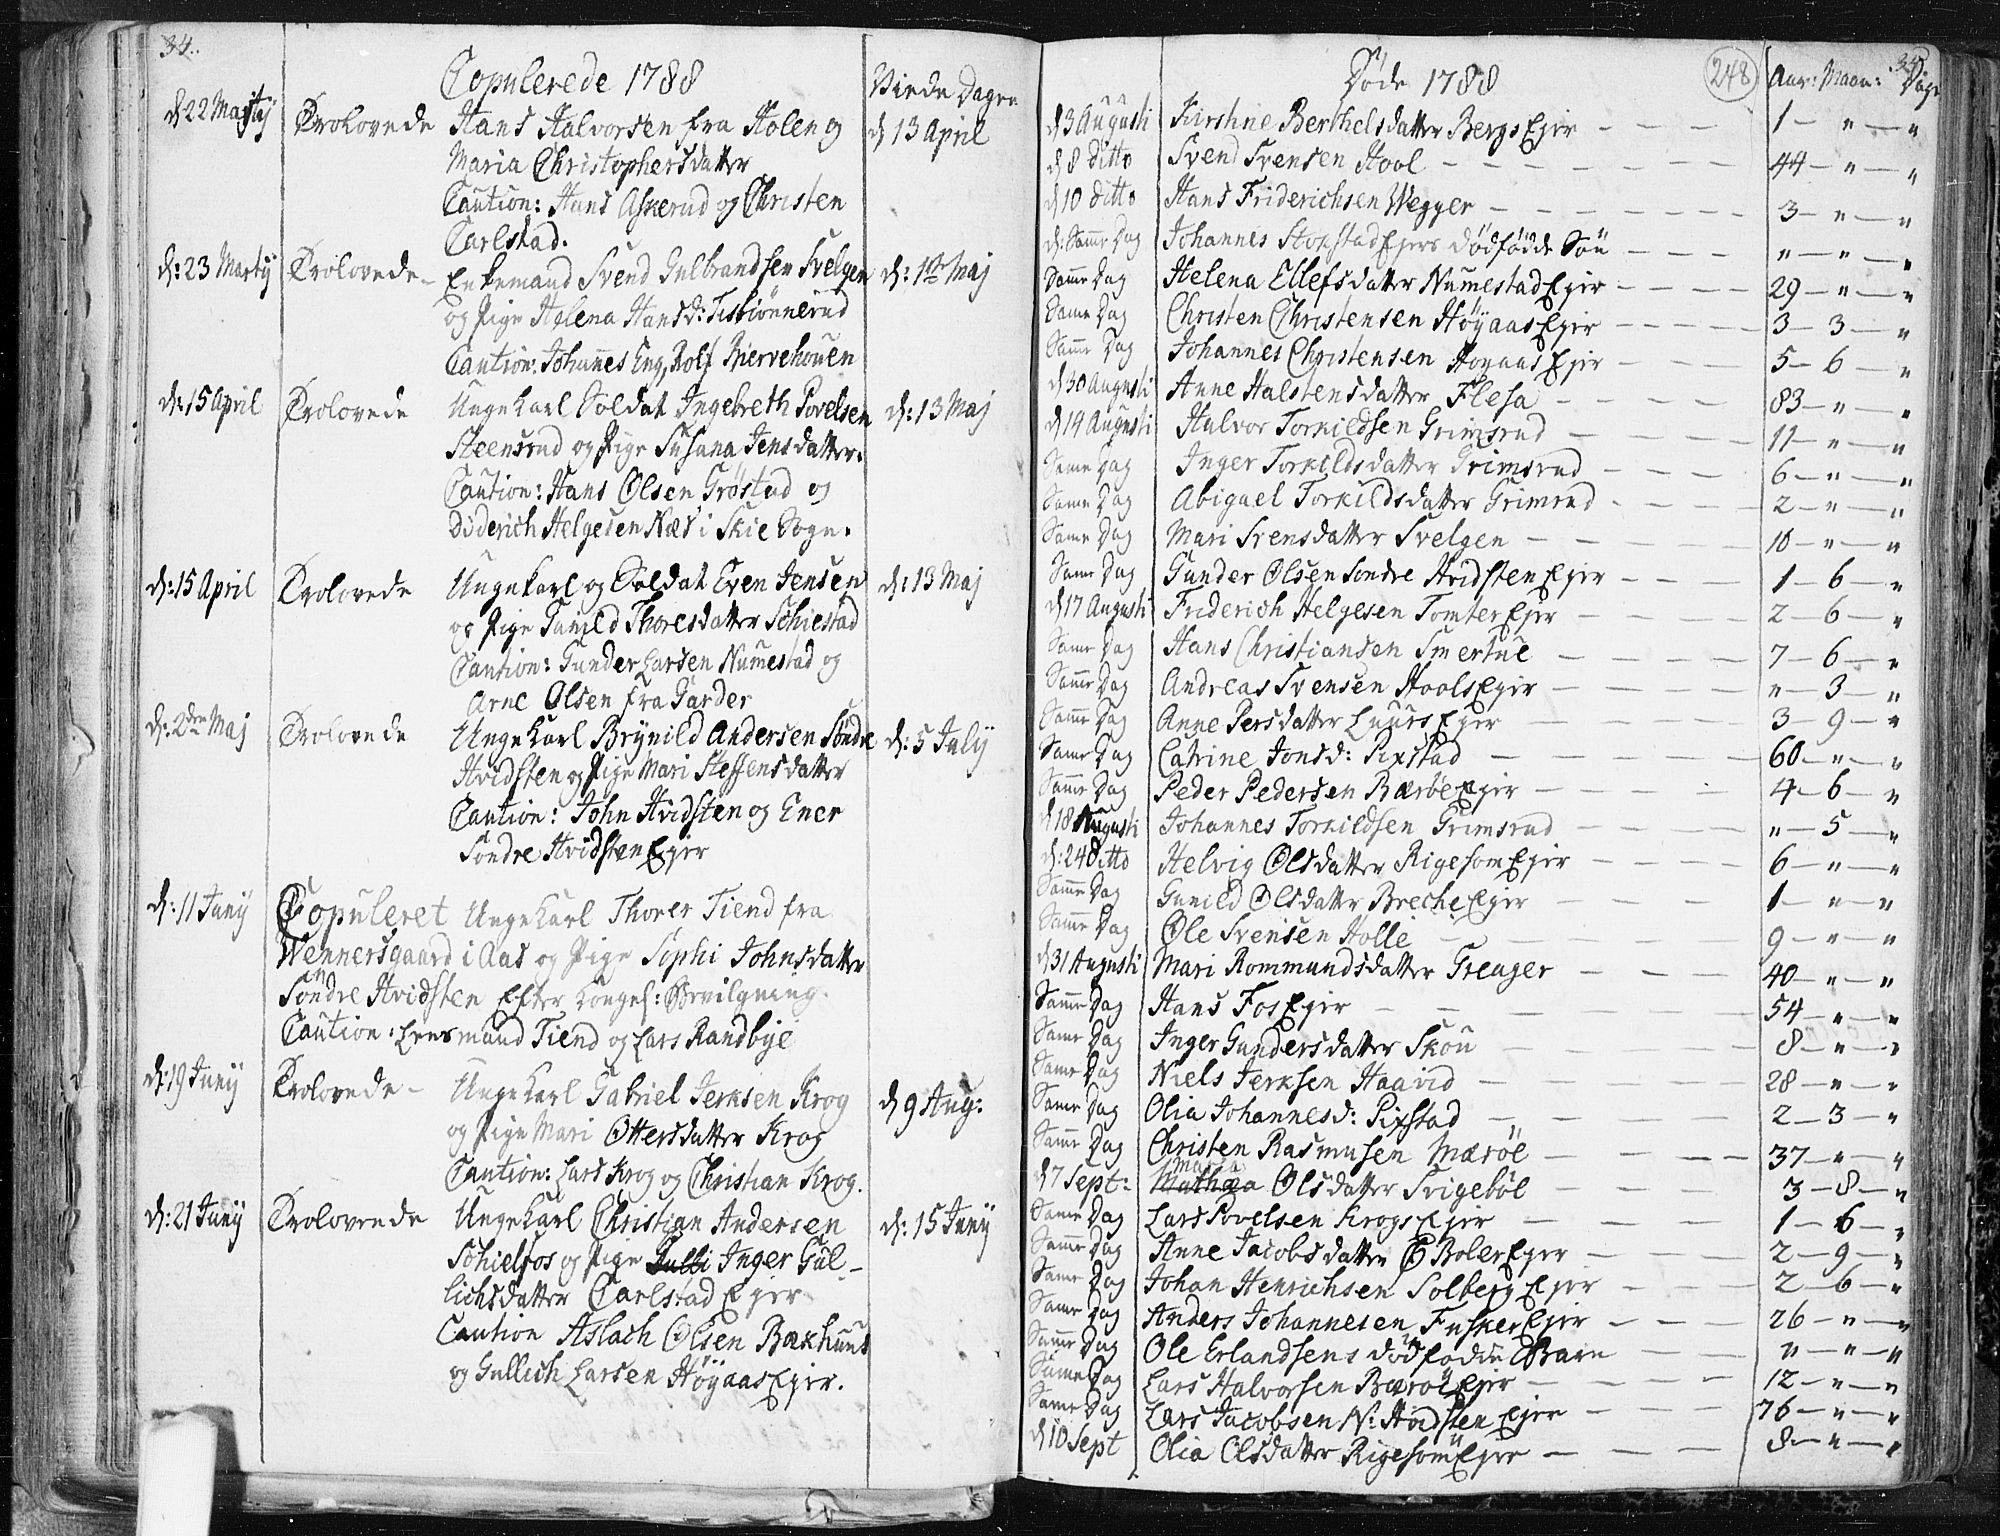 34.
Copulerede 1788
Vielse Dagen
d 22 Martij Trolovede Hans Halvorsen fra Holen og d 13 April
Maria Christophersdatter
Caution: Hans Askerud og Christen
Carlstad.
d: 23 Martij Trolovede Enkemand Svend Gulbrandsen Svelgen d: 1te Maj
og Pige Helena Hansd: Tisbiønnerud
Caution: Johannes Eng, Rolf Biervehouen
d: 15 April Trolovede Unge Karl Soldat Ingebreth Povelsen d: 13 Maj
Steensrud og Pige Susana Jensdatter.
Caution: Hans Olsen Grøstad og
Diderich Helgesen Næs i Skie Sogn.
d: 15 April Trolovede Ungekarl og Soldat Even Jensen d: 13 Maj
og Pige Gunild Thoresdatter Schiestad
Caution: Gunder Larsen Numestad og
Arne Olsen fra Garder
d: 2den Maj Trolovede Unge Karl Brynild Andersen Søndre d: 5 July
Hvidsten og Pige Mari Steffensdatter
Caution: John Hvidsten og Ener
Søndre Hvidsten Ejer
d: 11 Junij Copuleret Unge Karl Thorer Tiend fra
Wennersgaard i Aas og Pige Sophi Johnsdatter
Søndre Hvidsten Efter Kongel: Bevilgning.
Caution: Lensmand Tiend og Lars Randbye
d: 19 Junij Trolovede Unge Karl Gabriel Jerksen Krog d 9 Aug:
og Pige Mari Ottersdatter Krog
Caution: Lars Krog og Christian Krog.
d: 21 Junij Trolovende Unge Karl Christian Andersen d: 15 Junij
Schielfos og Pige Gulli Inger Gul-
lichsdatter Carlstad Ejer
Caution Aslach Olsen Bækhuus
og Gullich Larsen Høyaas Ejer.
Døde 1788 248 Aar: Maan: Dage
d 3 Augusti Kirstine Berthelsdatter Bergs Ejer 1 — " — "
d 8 ditto Svend Svensen Hool 44 — " — "
d 10 ditto Hans Friderichsen Wegger 3 — " — "
d: Samme Dag Johannes Stopstad Ejers dødfødde Søn " — " — "
Same Dag Helena Ellefsdatter Numestad Ejer 29 — " — "
Same Dag Christen Christensen Høyaas Ejer 3 — 3 — "
Samme Dag Johannes Christensen Høyaas Ejer 5 — 6 — "
d 30 Augusti Anne Halstensdatter Flesa 83 — " — "
d 14 Augusti Halvor Torkildsen Grimsrud 11 — " — "
Same Dag Inger Torkildsdatter Grimsrud 6 — " — "
Same Dag Abigael Torkildsdatter Grimrud 2 — " — "
Same Dag Mari Svensdatter Svelgen 10 — " — "
Same Dag Gunder Olsen Sondre Hvidsten Ejer 1 — 6 — "
d 17 Augusti Friderich Helgesen Tomter Ejer 2 — 6 — "
Same Dag Hans Christiansen Smertue 7 — 6 — "
Samme Dag Andreas Svensen Hools Ejer " — 3 — "
Samme Dag Anne Persdatter Luurs Ejer 3 — 9 — "
Same Dag Catrine Jonsd: Pixstad 60 — " — "
Samme Dag Peder Pedersen Bærøe Ejer 4 — 6 — "
d 18 Augusti Johannes Torkildsen Grimsrud " — 5 — "
d: 24 Ditto Helvig Olsdatter Rigesom Ejer 6 — " — "
Samme Dag Gunild Olsdatter Breche Ejer 1 — " — "
Samme Dag Ole Svensen Holle 9 — " — "
d 31 Augusti Mari Rommundsdatter Greager 40 — " — "
Samme Dag Hans Fos Ejer 54 — " — "
Same Dag Inger Gundersdatter Skou 8 — " — "
Same Dag Niels Jerksen Haavid 28 — " — "
Same Dag Olia Johannesd: Pixstad 2 — 3 — "
Samme Dag Christen Rasmusen Mærøe 37 — " — "
d 7 Sept: Maria Olsdatter Svigebøl 3 — 8 — "
Same Dag Lars Povelsen Krogs Ejer 1 — 6 — "
Samme Dag Anne Jacobsdatter Boler Ejer 2 — 9 — "
Same Dag Johan Henrichsen Solberg Ejer 2 — 6 — "
Same Dag Anders Johannesen Fusker Ejer 26 — " — "
Samme Dag Ole Erlandsens dødfødde Barn " — " — "
Same Dag Lars Halvorsen Bærøe Ejer 12 — " — "
Same Dag Lars Jacobsen N: Hvidsten Ejer 76 — " — "
d 10 Sept Olia Olsdatter Rigesom Ejer 8 — " — "